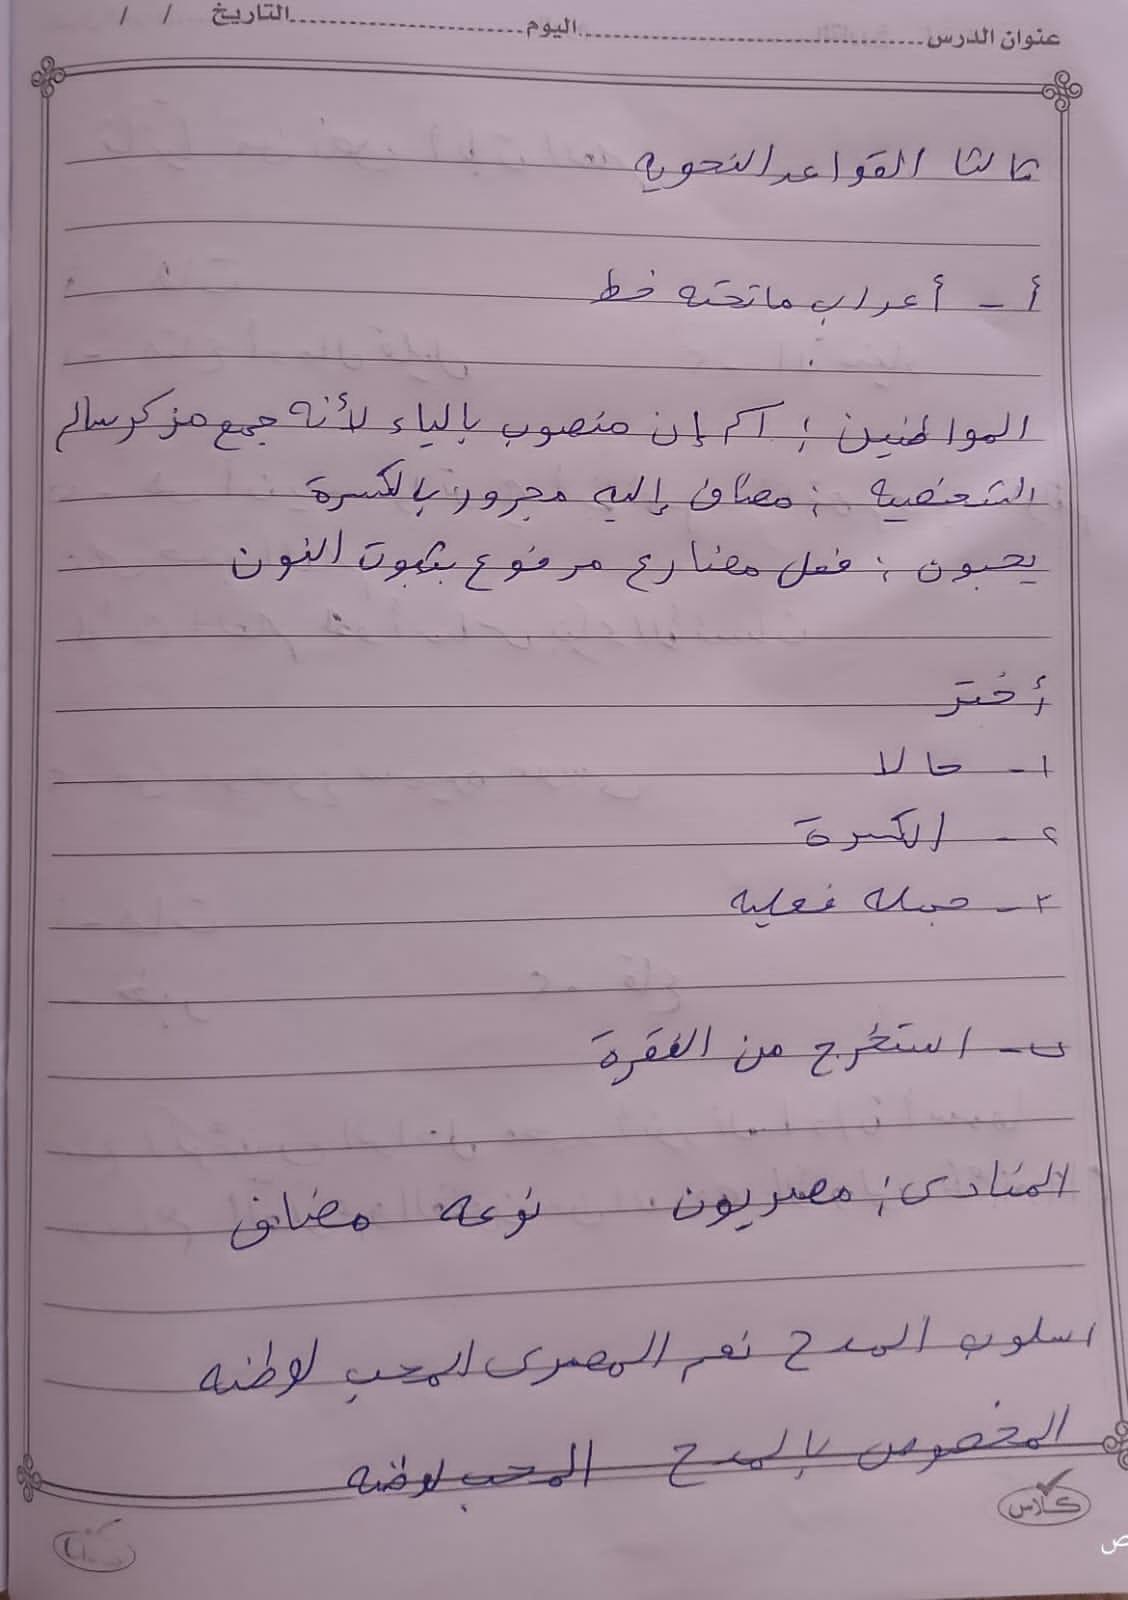 عنوان الدرس ........ اليوم ........ التاريخ / /
ثالثا القواعد النحويه
أ - أعراب ماتحته خط
المواطنين : اسم إن منصوب بالياء لأنه جمع مذكر سالم
الشخصيه : مضاف إليه مجرور بالكسرة
يحبون : فعل مضارع مرفوع بثبوت النون
أختر
١- حالا
٢- الكسرة
٣- جمله فعليه
ب - استخرج من الفقرة
المنادى : مصريون نوعه مضاف
اسلوب المدح نعم المصرى المحب لوطنه
المخصوص بالمدح المحب لوطنه
كلاس
ص